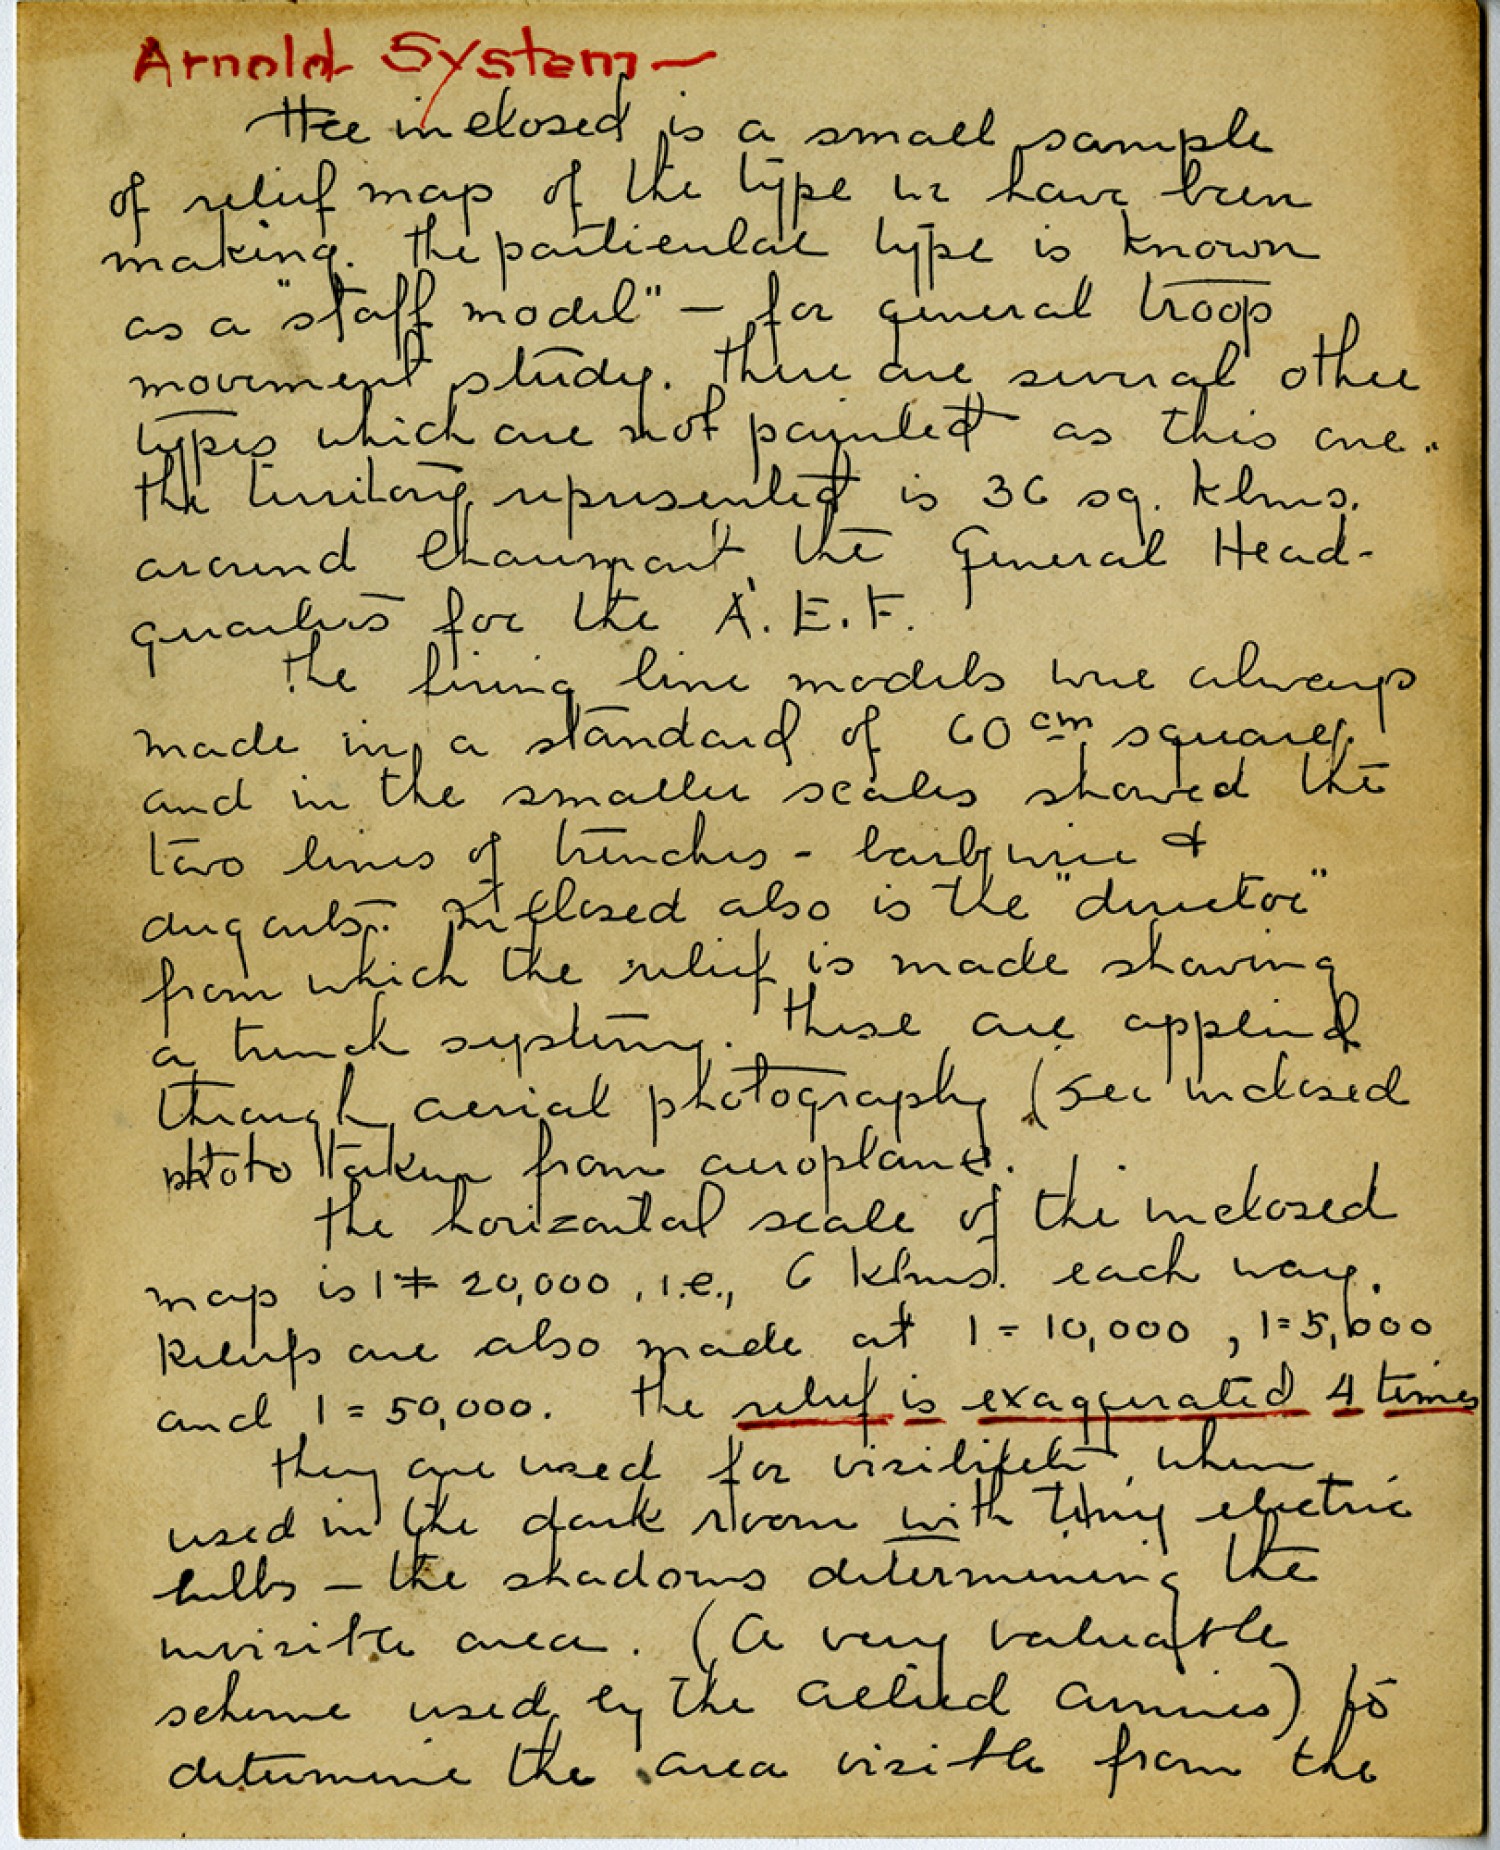 Arnold System —
The inclosed is a small sample
of relief map of the type we have been
making. The particular type is known
as a "staff model" — for general troop
movement study. There are several other
types which are not painted as this one.
The territory represented is 36 sq. klms.
around Chaumont, the General Head-
quarters for the A.E.F.
The firing line models were always
made in a standard of 60 cm square
and in the smaller scales showed the
two lines of trenches - barb wire &
dugouts. Inclosed also is the "director"
from which the relief is made showing
a trench system. These are applied
through aerial photography (see inclosed
photo taken from aeroplane.
The horizontal scale of the inclosed
map is 1 = 20,000, i.e., 6 klms. each way.
Reliefs are also made at 1 = 10,000, 1 = 5,000
and 1 = 50,000. The relief is exaggerated 4 times
They are used for visibility, when
used in the dark room with tiny electric
bulbs — the shadows determining the
invisible area. (A very valuable
scheme used by the allied armies) to
determine the area visible from the